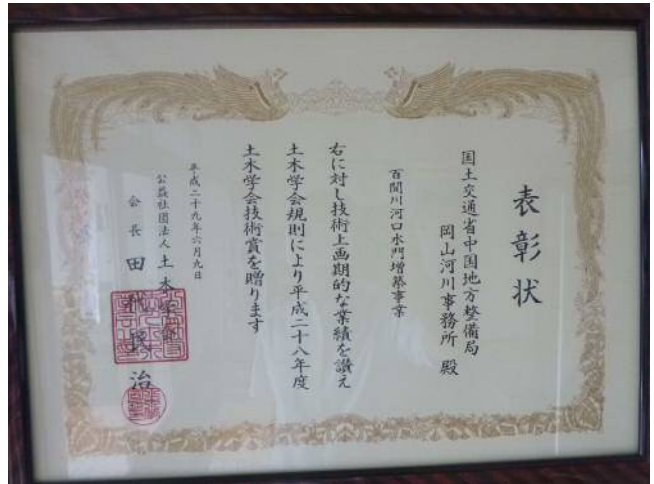 表彰状
国土交通省中国地方整備局
岡山河川事務所 殿
百間川河口水門増築事業
右に対し技術上画期的な業績を讃え
土木学会規則により平成二十八年度
土木学会技術賞を贈ります
平成二十九年六月九日
公益社団法人 土木学会
会長 田 治